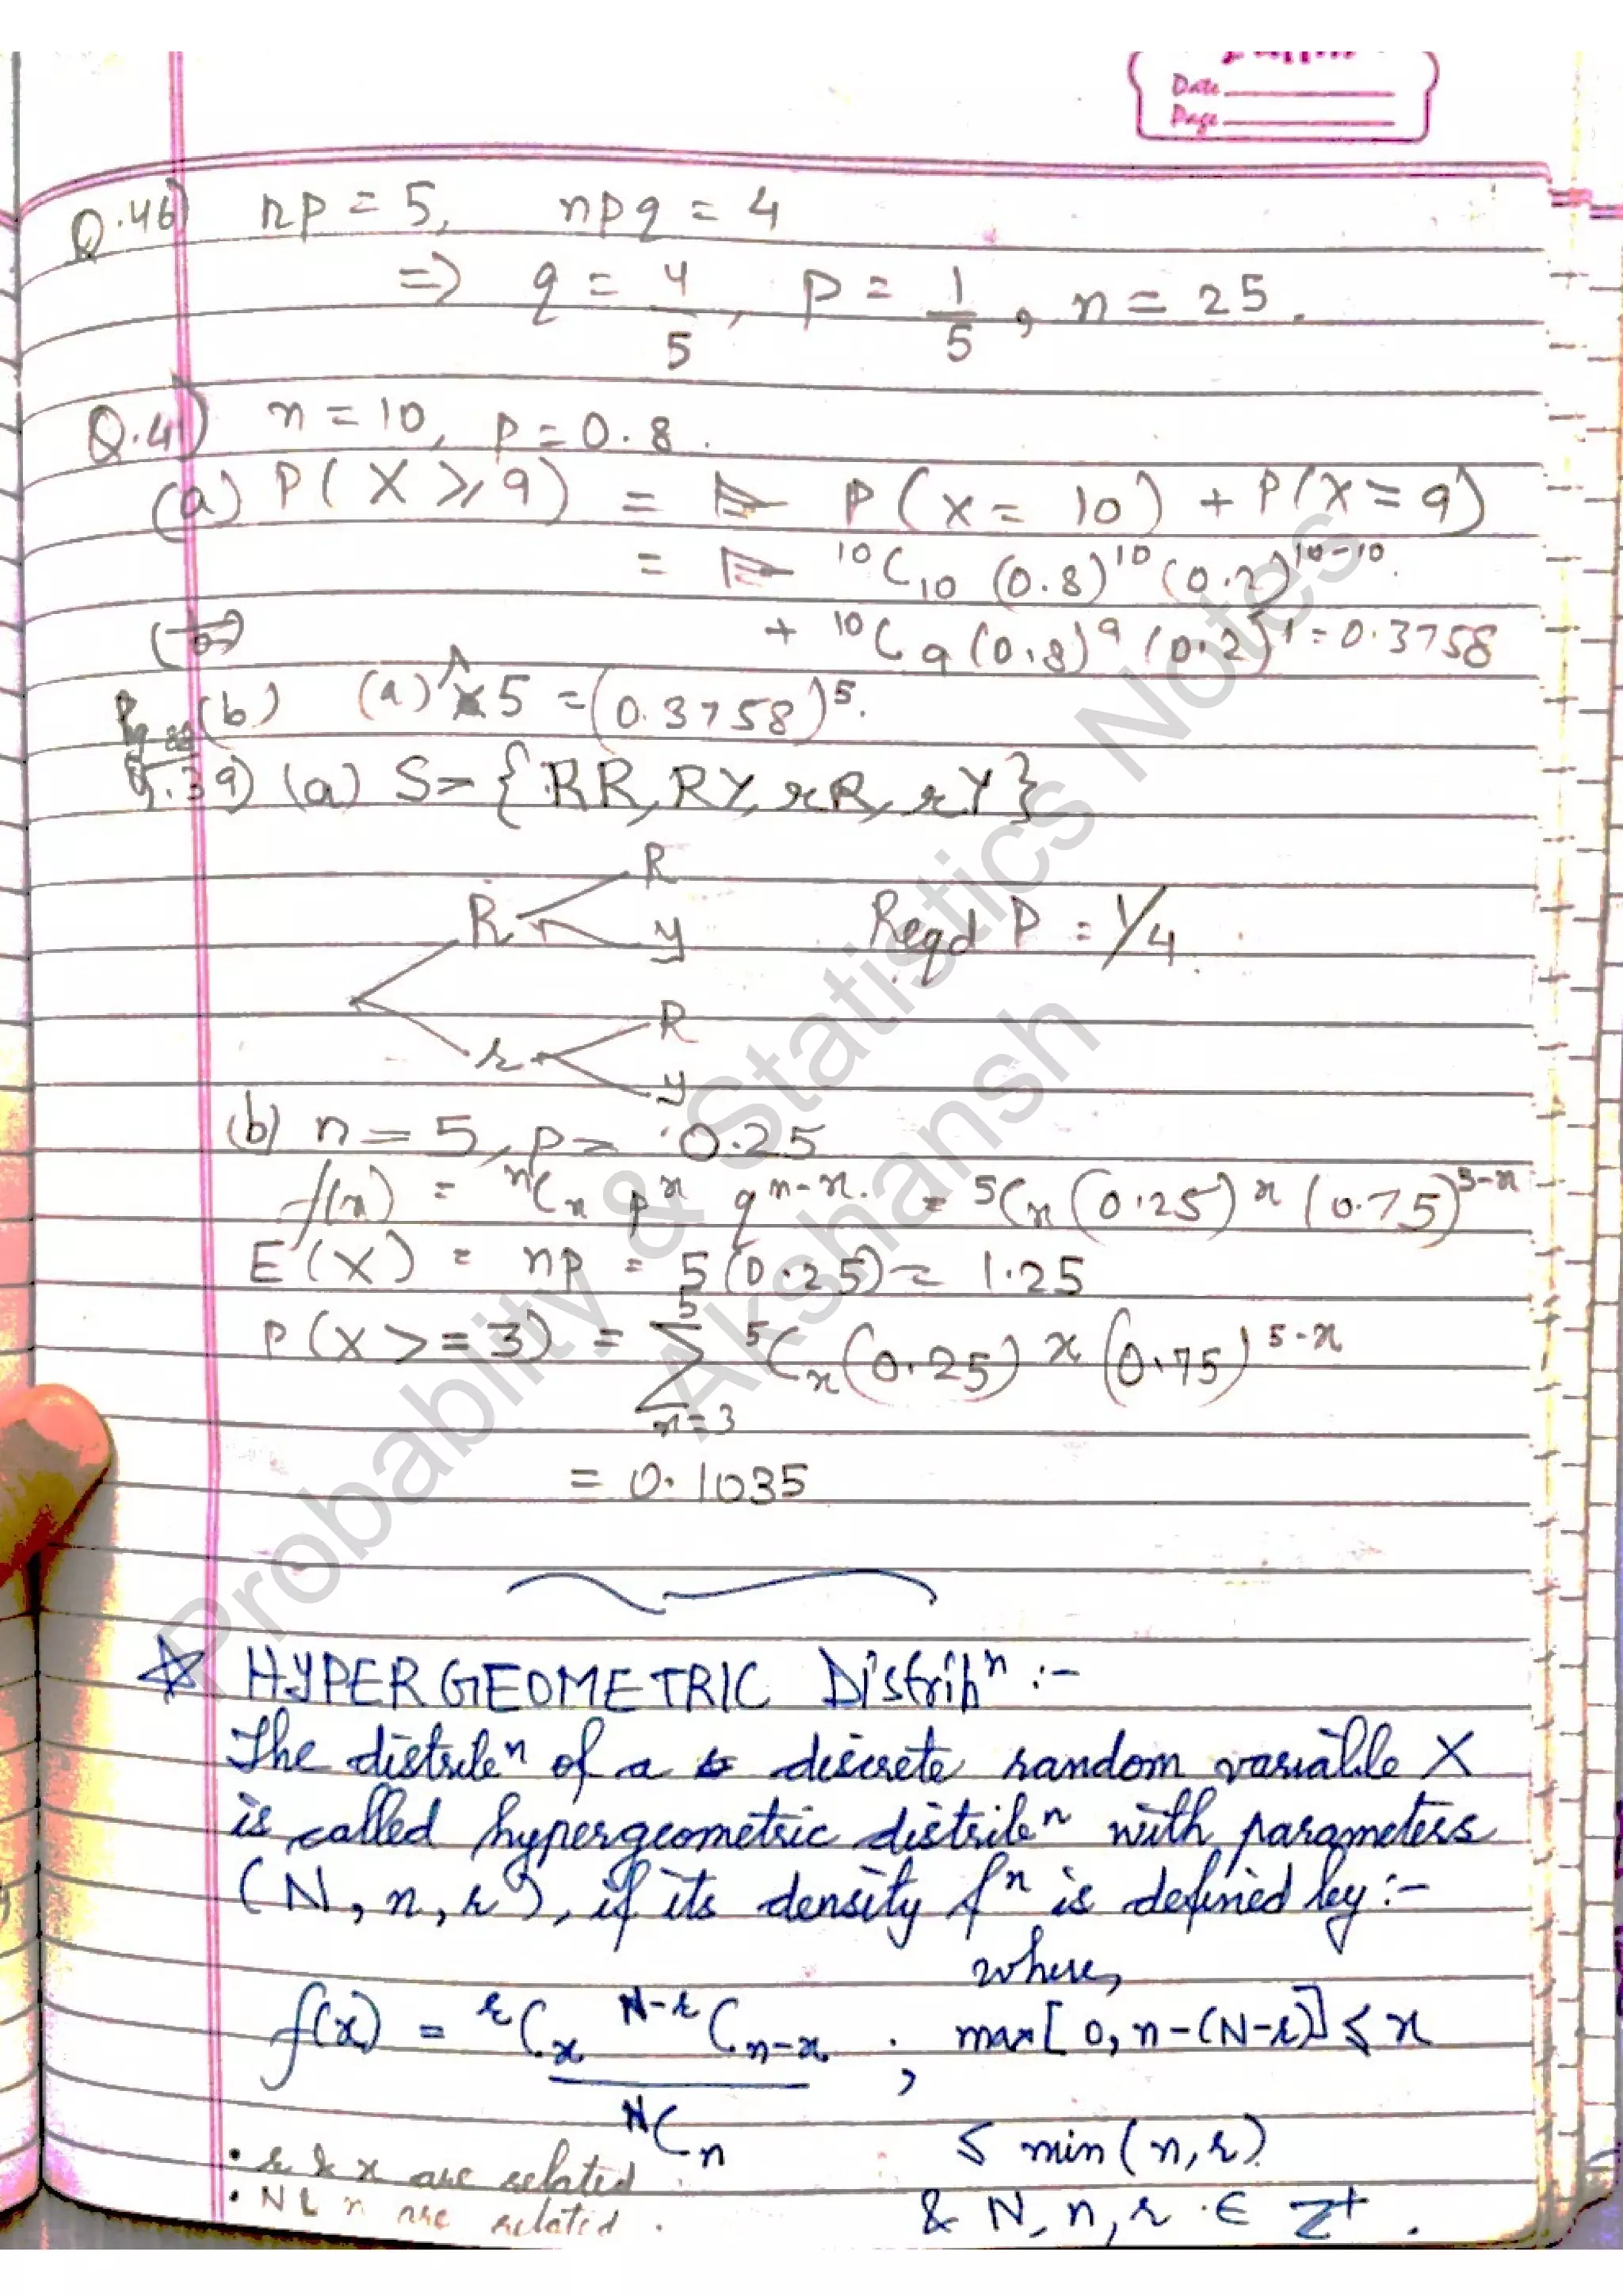 Date
Page
Q.46) np = 5, npq = 4
=> q = 4/5, p = 1/5, n = 25.
Q.41) n = 10, p = 0.8.
(a) P(X ≥ 9) = P(X = 10) + P(X = 9)
= ¹⁰C₁₀ (0.8)¹⁰ (0.2)¹⁰⁻¹⁰
+ ¹⁰C₉ (0.8)⁹ (0.2)¹ = 0.3758
(b) (a)^5 = (0.3758)⁵.
Q.39) (a) S = {RR, RY, rR, rY}
R
R y Reqd P = 1/4
R
r
y
(b) n = 5, p = 0.25
f(x) = ⁿCₓ pˣ qⁿ⁻ˣ = ⁵Cₓ (0.25)ˣ (0.75)⁵⁻ˣ
E(X) = np = 5(0.25) = 1.25
P(X >= 3) = 5∑x=3 ⁵Cₓ (0.25)ˣ (0.75)⁵⁻ˣ
= 0.1035
☆ HYPERGEOMETRIC Distribⁿ :-
The distribⁿ of a discrete random variable X
is called hypergeometric distribⁿ with parameters
(N, n, r), if its density fⁿ is defined by :-
where,
f(x) = ʳCₓ ᴺ⁻ʳCₙ₋ₓ / ᴺCₙ ; max[0, n-(N-r)] ≤ x
≤ min(n, r)
• r & x are related.
• N & n are related.
& N, n, r ∈ Z⁺.
Probablity & Statistics Notes
Akshansh